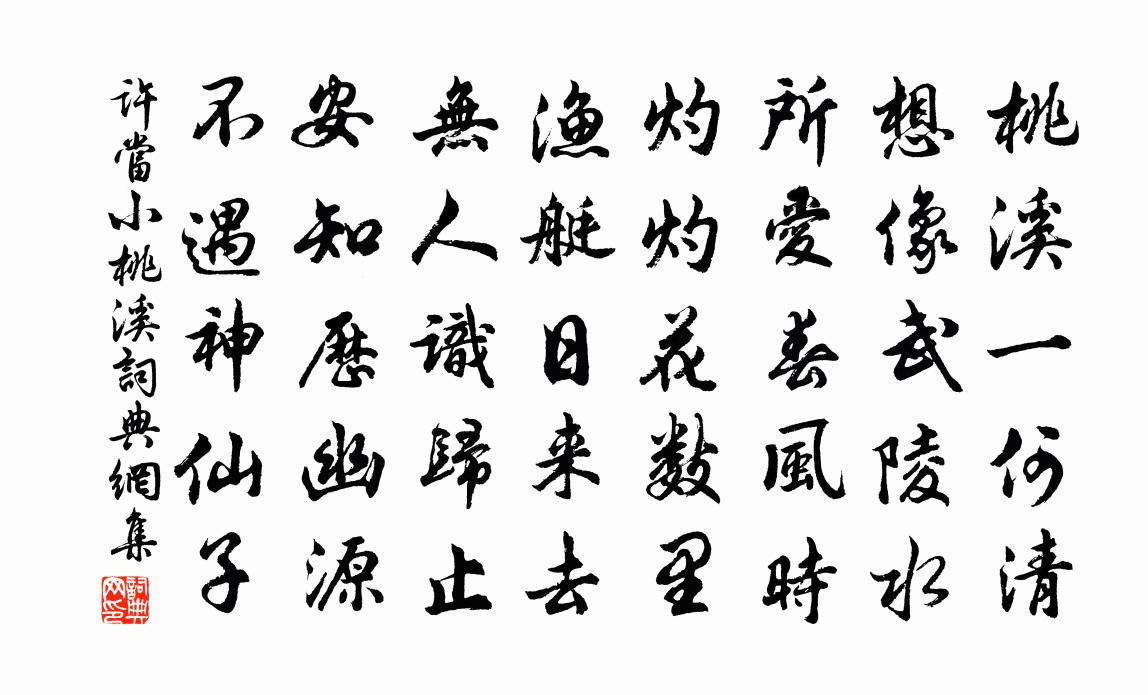 桃溪一何清
想像武陵水
所愛春風時
灼灼花數里
漁艇日来去
無人識歸止
安知歷幽源
不遇神仙子
許當小桃溪詞典網集
詞典网印